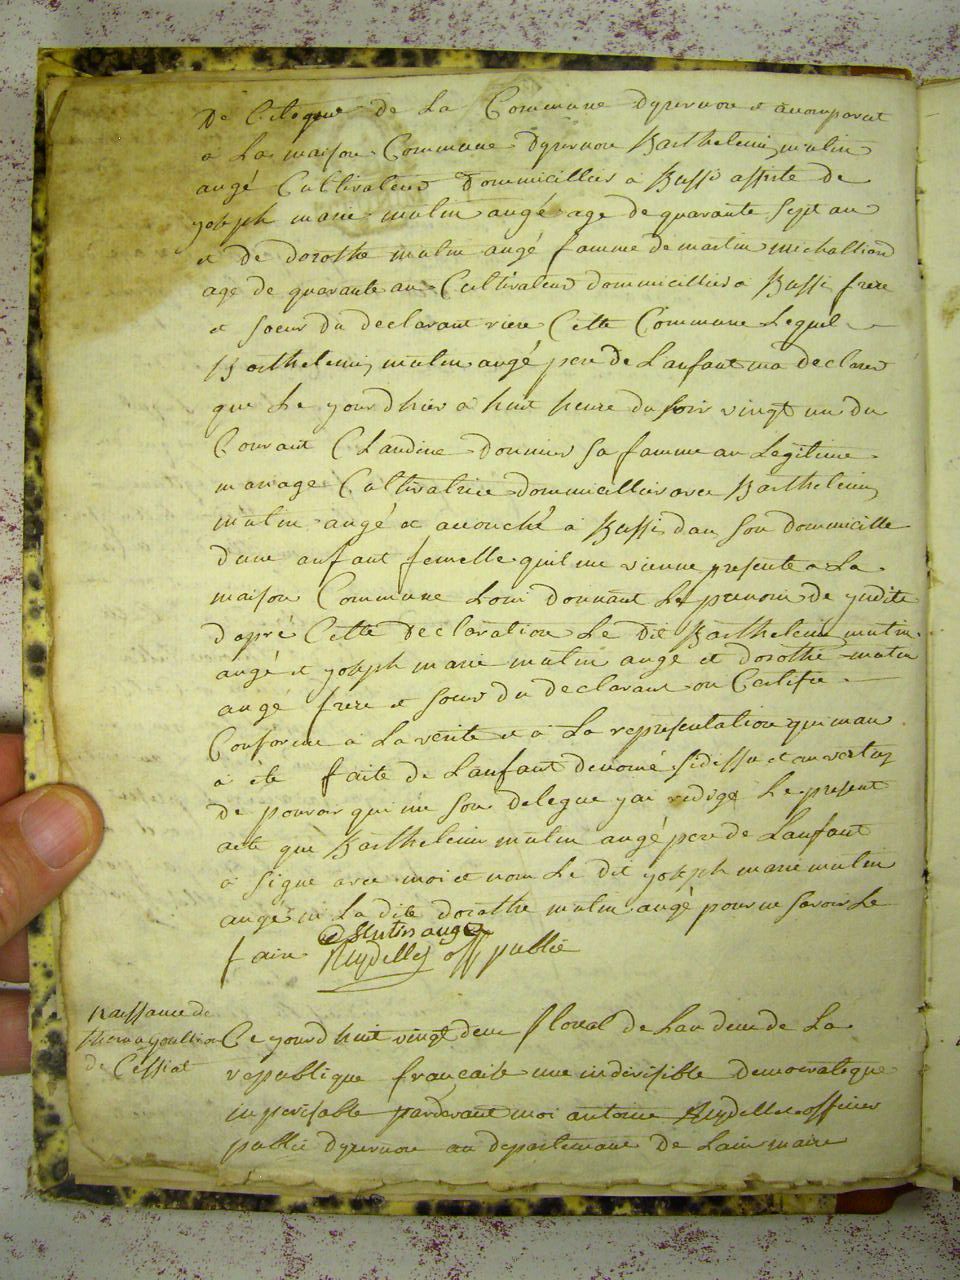 De Celogne de La Commune Dyzernore et a comparut
a La maison Commune Dyzernore Barthelemi mutin
angé Cultivateur Dommicillier a Bussi assiste de
yoseph marie mutin angé age de quarante Sept an
et de dorothe mutin angé famme de martin michalliard
age de quarante an Cultivateur dommicillier a Bussi frere
et soeur du declarant riere Cette Commune Lequel
Barthelemi mutin angé pere de Lanfant ma declarer
que Le your dhier a huit heure du soir vingt un du
Courant Claudine Dounier sa famme an Legitime
mariage Cultivatrice dommicillier avec Barthelemi
mutin angé et accouché a Bussi dan son dommicille
dune anfant femelle quil me vienne presente a La
maison Commune Loui donnant Le prenom de yudite
dapré Cette Declaration Le dit Barthelemi mutin
angé et yoseph marie mutin angé et dorothé mutin
angé frere et soeur du declarant on Certifie
Conforme a La verite et a La representation qui man
a été faite de Lanfant denomé sidessu et an vertuz
de pouvoir qui me son delegue yai redigé Le present
acte que Barthelemi mutin angé pere de Lanfant
a Signe avec moi et nom Le dit yoseph marie mutin
angé ni La dite dorothe mutin angé pour ne savoir Le
faire Mutin angé
Reydellet off publie
Naissance de
de Cessiat
Ce yourdhuit vingt deux floreal de Lan deux de La
reppublique francaise une indivisible democratique
imperisable pardevant moi antoine Reydellet officier
public dyzernore au departemant de Lain maire